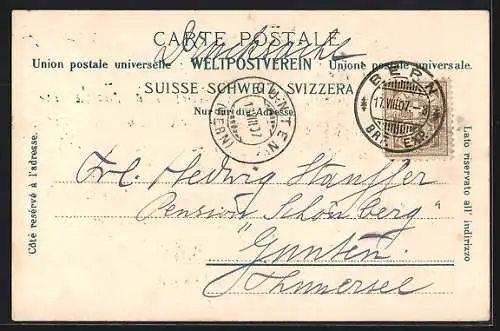 CARTE POSTALE
Drucksache
Union postale universelle WELTPOSTVEREIN Unione postale universale.
SUISSE SCHWEIZ SVIZZERA
Nur für die Adresse.
GUNTEN
17.VIII.07
(BERN)
BERN
17.VIII.07.
BRF. EXP.
Côté reservé à l'adresse.
Lato riservato all' indirizzo
Frl. Hedwig Stauffer
Pension Schönberg
"Gunten"
Thunersee